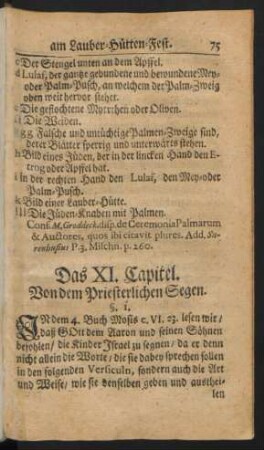 am Lauber-Hütten-Fest. 75
c Der Stengel unten an dem Apffel.
d Lulaf, der gantze gebundene und bewundene Mey-
oder Palm-Pusch, an welchem der Palm-Zweig
oben weit hervor stehet.
e Die geflochtene Myrthen oder Oliven.
f Die Weiden.
g g Falsche und untüchtige Palmen-Zweige sind,
derer Blätter sperrig und unterwärts stehen.
h Bild eines Jüden, der in der lincken Hand den E-
trog oder Apfel hat.
i in der rechten Hand den Lulaf, den Mey-oder
Palm-Pusch.
k Bild einer Lauber-Hütte.
lll Die Jüden-Knaben mit Palmen.
Conf. M. Groddeck. disp. de Ceremonia Palmarum
& Auctores, quos ibi citavit plures. Add. Su-
renhusius P. 3. Mischn. p. 260.
Das XI. Capitel.
Von dem Priesterlichen Segen.
§. 1.
IN dem 4. Buch Mosis c. VI. 23. lesen wir,
daß GOtt dem Aaron und seinen Söhnen
befohlen, die Kinder Israel zu segnen, da er denn
nicht allein die Worte, die sie dabey sprechen sollen
in den folgenden Versiculn, sondern auch die Art
und Weise, wie sie denselben geben und austhei-
len